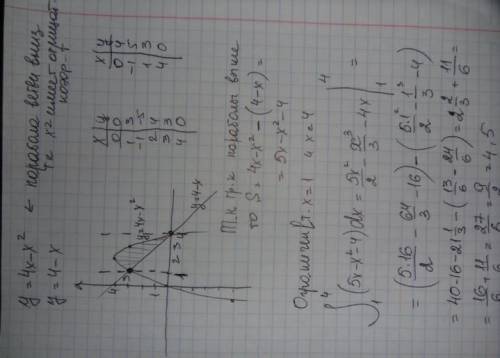 y = 4x - x² ← парабола ветви вниз
т.к. x² имеет отрицат.
y = 4 - x
x | y
0 | 0
1 | 3
-1 | -5
2 | 4
3 | 3
4 | 0
x | y
0 | 4
-1 | 5
1 | 3
4 | 0
y=4x-x²
y=4-x
Т.к. гр-к параболы выше
то S = 4x-x² - (4-x) =
= 5x-x²-4
Ограничен т. x=1 и x=4
∫₁⁴ (5x-x²-4)dx = 5x²/2 - x³/3 - 4x |₁⁴ =
= (5·16/2 - 64/3 - 16) - (5·1²/2 - 1³/3 - 4)
= 40-16-21 1/3 - (13/6 - 24/6) = 2 2/3 + 11/6 =
= 16/6 + 11/6 = 27/6 = 9/2 = 4,5